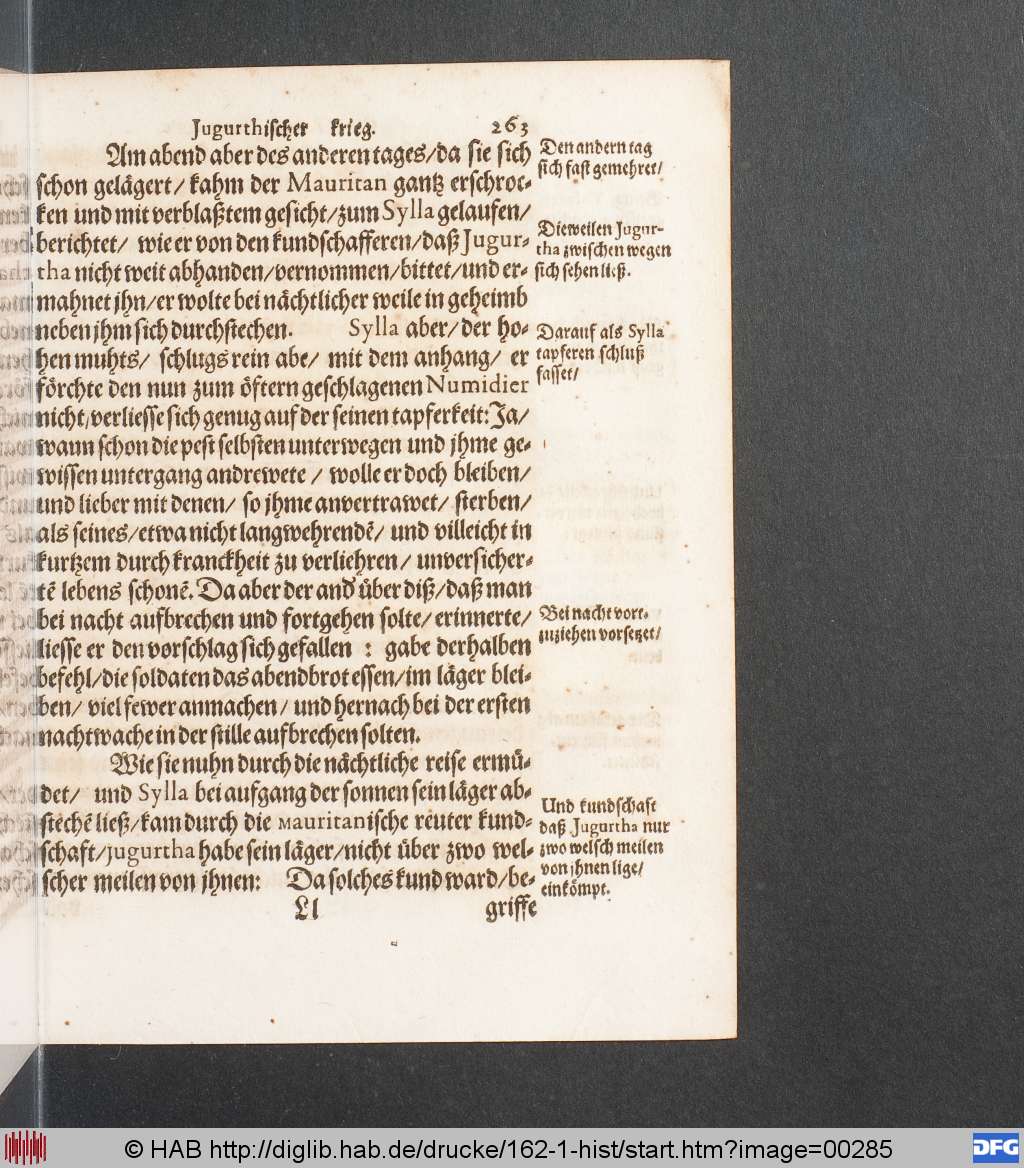 Jugurthischer krieg. 263
Am abend aber des anderen tages/da sie sich
schon gelägert/ kahm der Mauritan gantz erschroc-
ken und mit verblaßtem gesicht/zum Sylla gelaufen/
berichtet/ wie er von den kundschafferen/daß Jugur-
tha nicht weit abhanden/vernommen/bittet/und er-
mahnet jhn/er wolte bei nächtlicher weile in geheimb
neben jhm sich durchstechen. Sylla aber/der ho-
hen muhts/ schlugs rein abe/ mit dem anhang/ er
förchte den nun zum öftern geschlagenen Numidier
nicht/verliesse sich genug auf der seinen tapferkeit: Ja/
wann schon die pest selbsten unterwegen und jhme ge-
wissen untergang andrewete / wolle er doch bleiben/
und lieber mit denen/ so jhme anvertrawet/ sterben/
als seines/etwa nicht langwehrendē/ und villeicht in
kurtzem durch kranckheit zu verliehren/ unversicher-
tē lebens schonē. Da aber der and' über diß/daß man
bei nacht aufbrechen und fortgehen solte/erinnerte/
liesse er den vorschlag sich gefallen : gabe derhalben
befehl/die soldaten das abendbrot essen/im läger blei-
ben/ viel fewer anmachen/ und hernach bei der ersten
nachtwache in der stille aufbrechen solten.
Wie sie nuhn durch die nächtliche reise ermü-
det/ und Sylla bei aufgang der sonnen sein läger ab-
stechē ließ/kam durch die Mauritanische reuter kund-
schaft/jugurtha habe sein läger/nicht über zwo wel-
scher meilen von jhnen: Da solches kund ward/be-
Ll griffe
Den andern tag
sich fast gemehret/
Dieweilen Jugur-
tha zwischen wegen
sich sehen ließ.
Darauf als Sylla
tapferen schluß
fasset/
Bei nacht vort-
zuziehen vorsetzet/
Und kundschaft
daß Jugurtha nur
zwo welsch meilen
von jhnen lige/
einkömpt.
© HAB http://diglib.hab.de/drucke/162-1-hist/start.htm?image=00285
DFG